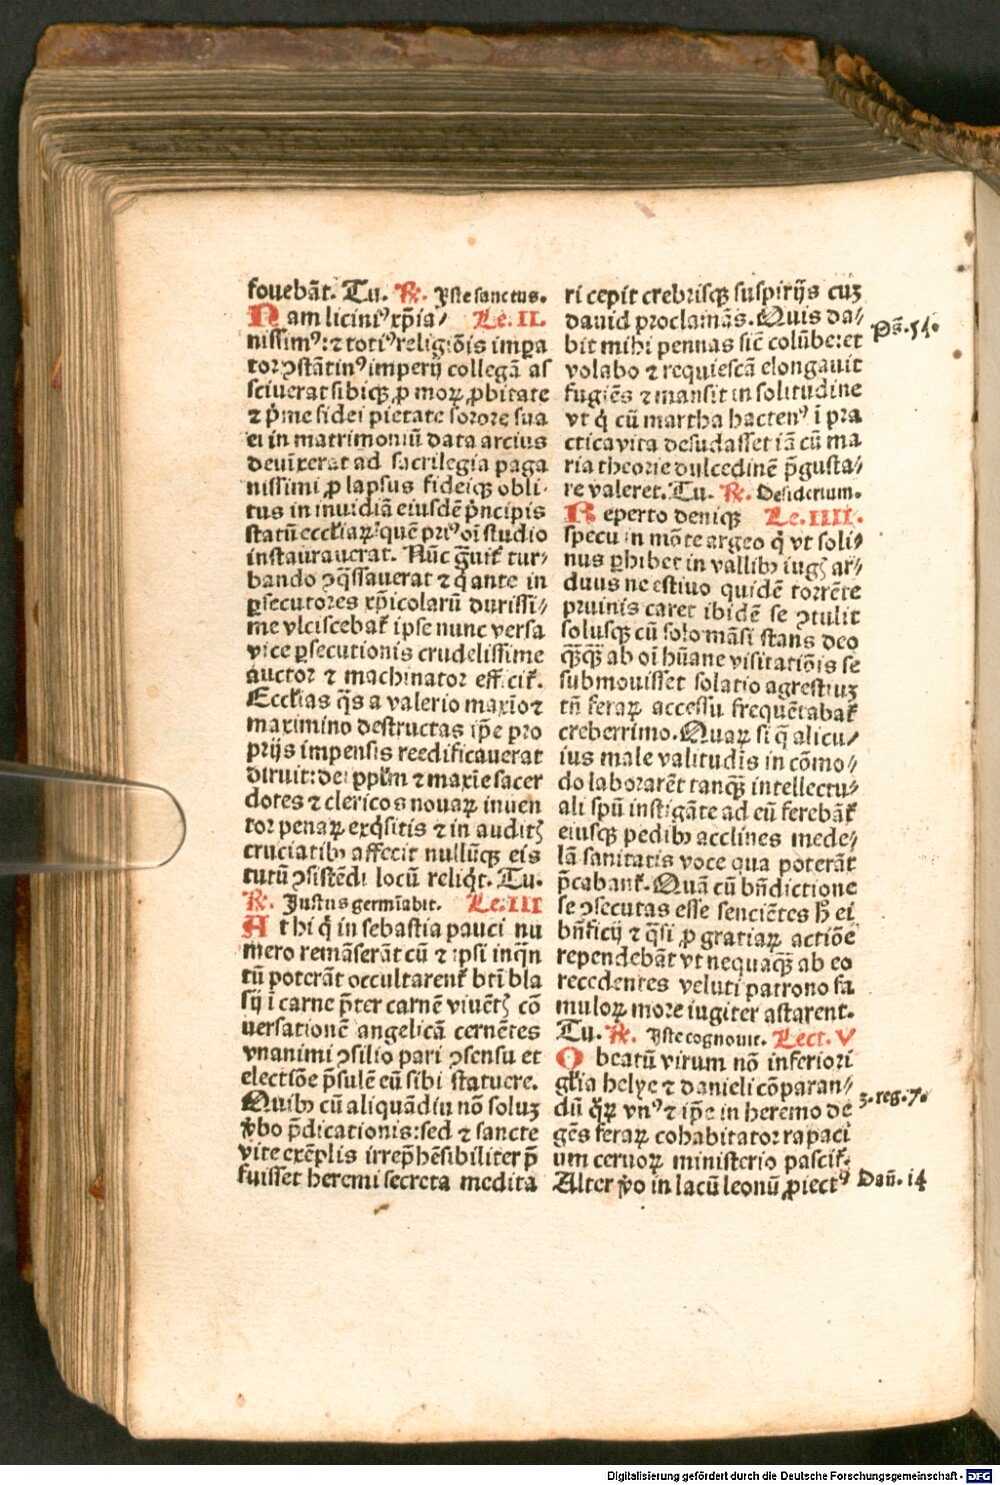 fouebāt. Tu. ℟. Iste sanctus.
Nam liciniꝰ xp̄ia⸗ Le. II.
nissimꝰ: ⁊ totiꝰ religiōis impa
tor ꝯstātinꝰ imperij collegā as
sciuerat sibiqꝫ ꝓ moꝝ ꝓbitate
⁊ p̄me fidei pietate sorore sua
ei in matrimoniū data arcius
deuīxerat ad sacrilegia paga
nissimi ꝓlapsus fideiqꝫ obli⸗
tus in inuidiā eiusdē pncipis
statū eccliaꝝ quē priꝰ oī studio
instaurauerat. Nūc ḡuit tur⸗
bando ꝯq̄ssauerat ⁊ q̄ ante in
ꝑsecutores xp̄icolarū durissi⸗
me vlciscebat ipse nunc versa
vice ꝑsecutionis crudelissime
auctor ⁊ machinator efficit.
Ecclias q̄s a valerio maxīo ⁊
maximino destructas ip̄e pro
prijs impensis reedificauerat
diruit: dei pplm ⁊ maxīe sacer
dotes ⁊ clericos nouaꝝ inuen
tor penaꝝ exq̇sitis ⁊ in auditꝭ
cruciatibꝫ affecit nullūqꝫ eis
tutū ꝯsistēdi locū reliq̇t. Tu.
℟. Iustus germīabit. Le. III
At hi q̇ in sebastia pauci nu
mero remāserāt cū ⁊ ipsi inq̄n
tū poterāt occultarent btī bla
sij ī carne p̄ter carnē viuētꝭ cō
uersationē angelicā cernētes
vnanimi ꝯsilio pari ꝯsensu et
electōe p̄sulē eū sibi statuere.
Quibꝫ cū aliquādiu nō soluꝫ
v̄bo p̄dicationis: sed ⁊ sancte
vite exēplis irrep̄hēsibiliter p̄
fuisset heremi secreta medita
ri cepit crebrisqꝫ suspirijs cuꝫ
dauid proclamās. Quis da⸗
bit mihi pennas sic̄ colūbe: et
volabo ⁊ requiescā elongauit
fugiēs ⁊ mansit in solitudine
vt q̇ cū martha hactenꝰ ī pra
ctica vita desudasset iā cū ma
ria theorie dulcedinē p̄gusta⸗
re valeret. Tu. ℟. Desiderium.
Reperto deniqꝫ Le. IIII.
specu in mōte argeo q̇ vt soli⸗
nus ꝑhibet in vallibꝫ iugꝭ ar⸗
duus ne estiuo quidē torrēte
pruinis caret ibidē se ꝯtulit
solusqꝫ cū solo māsi stans deo
qꝫ̄qꝫ̄ ab oī hūane visitatiōis se
submouisset solatio agrestiuꝫ
tn̄ feraꝝ accessu frequētabat
creberrimo. Quaꝝ si q̄ alicu⸗
ius male valitudīs in cōmo⸗
do laborarēt tanqꝫ̄ intellectu⸗
ali spū instigāte ad eū ferebāt
eiusqꝫ pedibꝫ acclines mede⸗
lā sanitatis voce qua poterāt
p̄cabant. Quā cū bn̄dictione
se ꝯsecutas esse senciētes ħ ei
bn̄ficij ⁊ q̄si ꝓ gratiaꝝ actiōe
rependebāt vt nequaqꝫ̄ ab eo
recedentes veluti patrono fa
muloꝝ more iugiter astarent.
Tu. ℟. Iste cognouit. Lect. V
O beatū virum nō inferiori
glia helye ⁊ danieli cōparan⸗
dū q̇ꝝ vnꝰ ⁊ ip̄e in heremo de
gēs feraꝝ cohabitator rapaci
um ceruoꝝ ministerio pascit.
Alter v̄o in lacū leonū ꝓiectꝰ
Ps̄. 54.
3. reg. 7.
Dan̄. 14
Digitalisierung gefördert durch die Deutsche Forschungsgemeinschaft - DFG